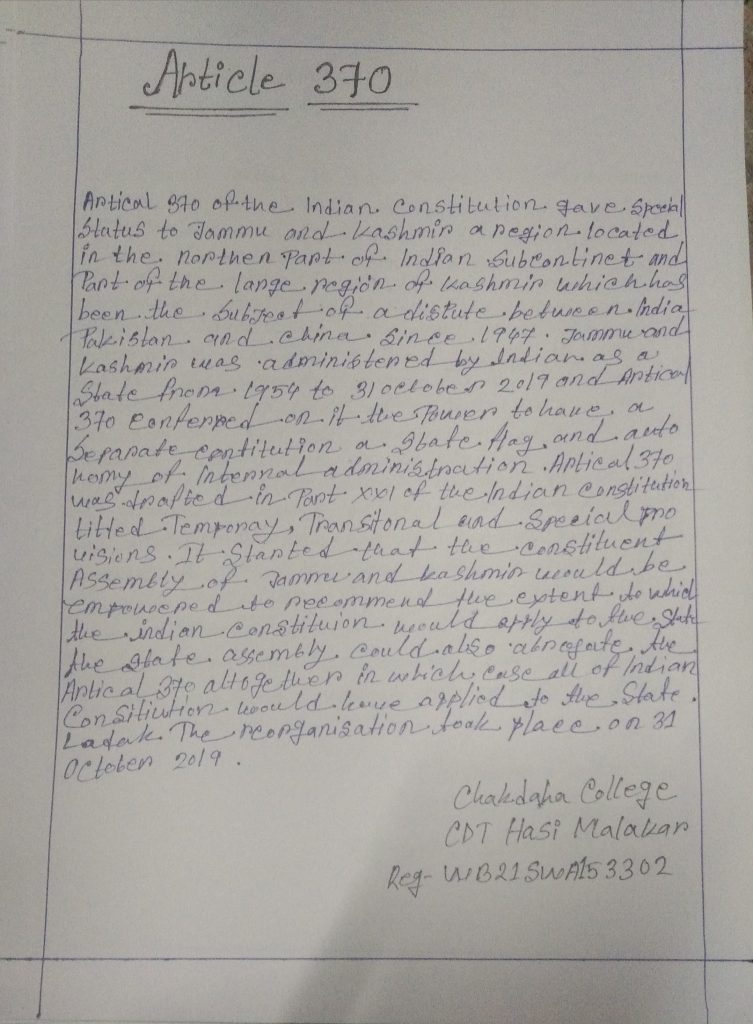 Article 370
Artical 370 of the Indian Constitution gave Special
Status to Jammu and Kashmir a region located
in the northen Part of Indian Subcontinet and
Part of the large region of Kashmir which has
been the Subject of a dispute between India
Pakistan and China Since 1947. Jammu and
Kashmir was administered by Indian as a
State from 1954 to 31 october 2019 and Artical
370 Conferred on it the Power to have a
Separate contitution a State flag and auto
nomy of Internal administration. Artical 370
was drafted in Part XXI of the Indian Constitution
titled Temporay, Transitonal and Special pro
visions. It Started that the constituent
Assembly of Jammu and Kashmir would be
empowered to recommend the extent to which
the indian Constituion would apply to the State
the State assembly could also abrogate the
Artical 370 altogether in which case all of Indian
Consititution would have applied to the State.
Ladak. The reorganisation took place on 31
October 2019.
Chakdaha College
CDT Hasi Malakar
Reg- WB21SWA153302